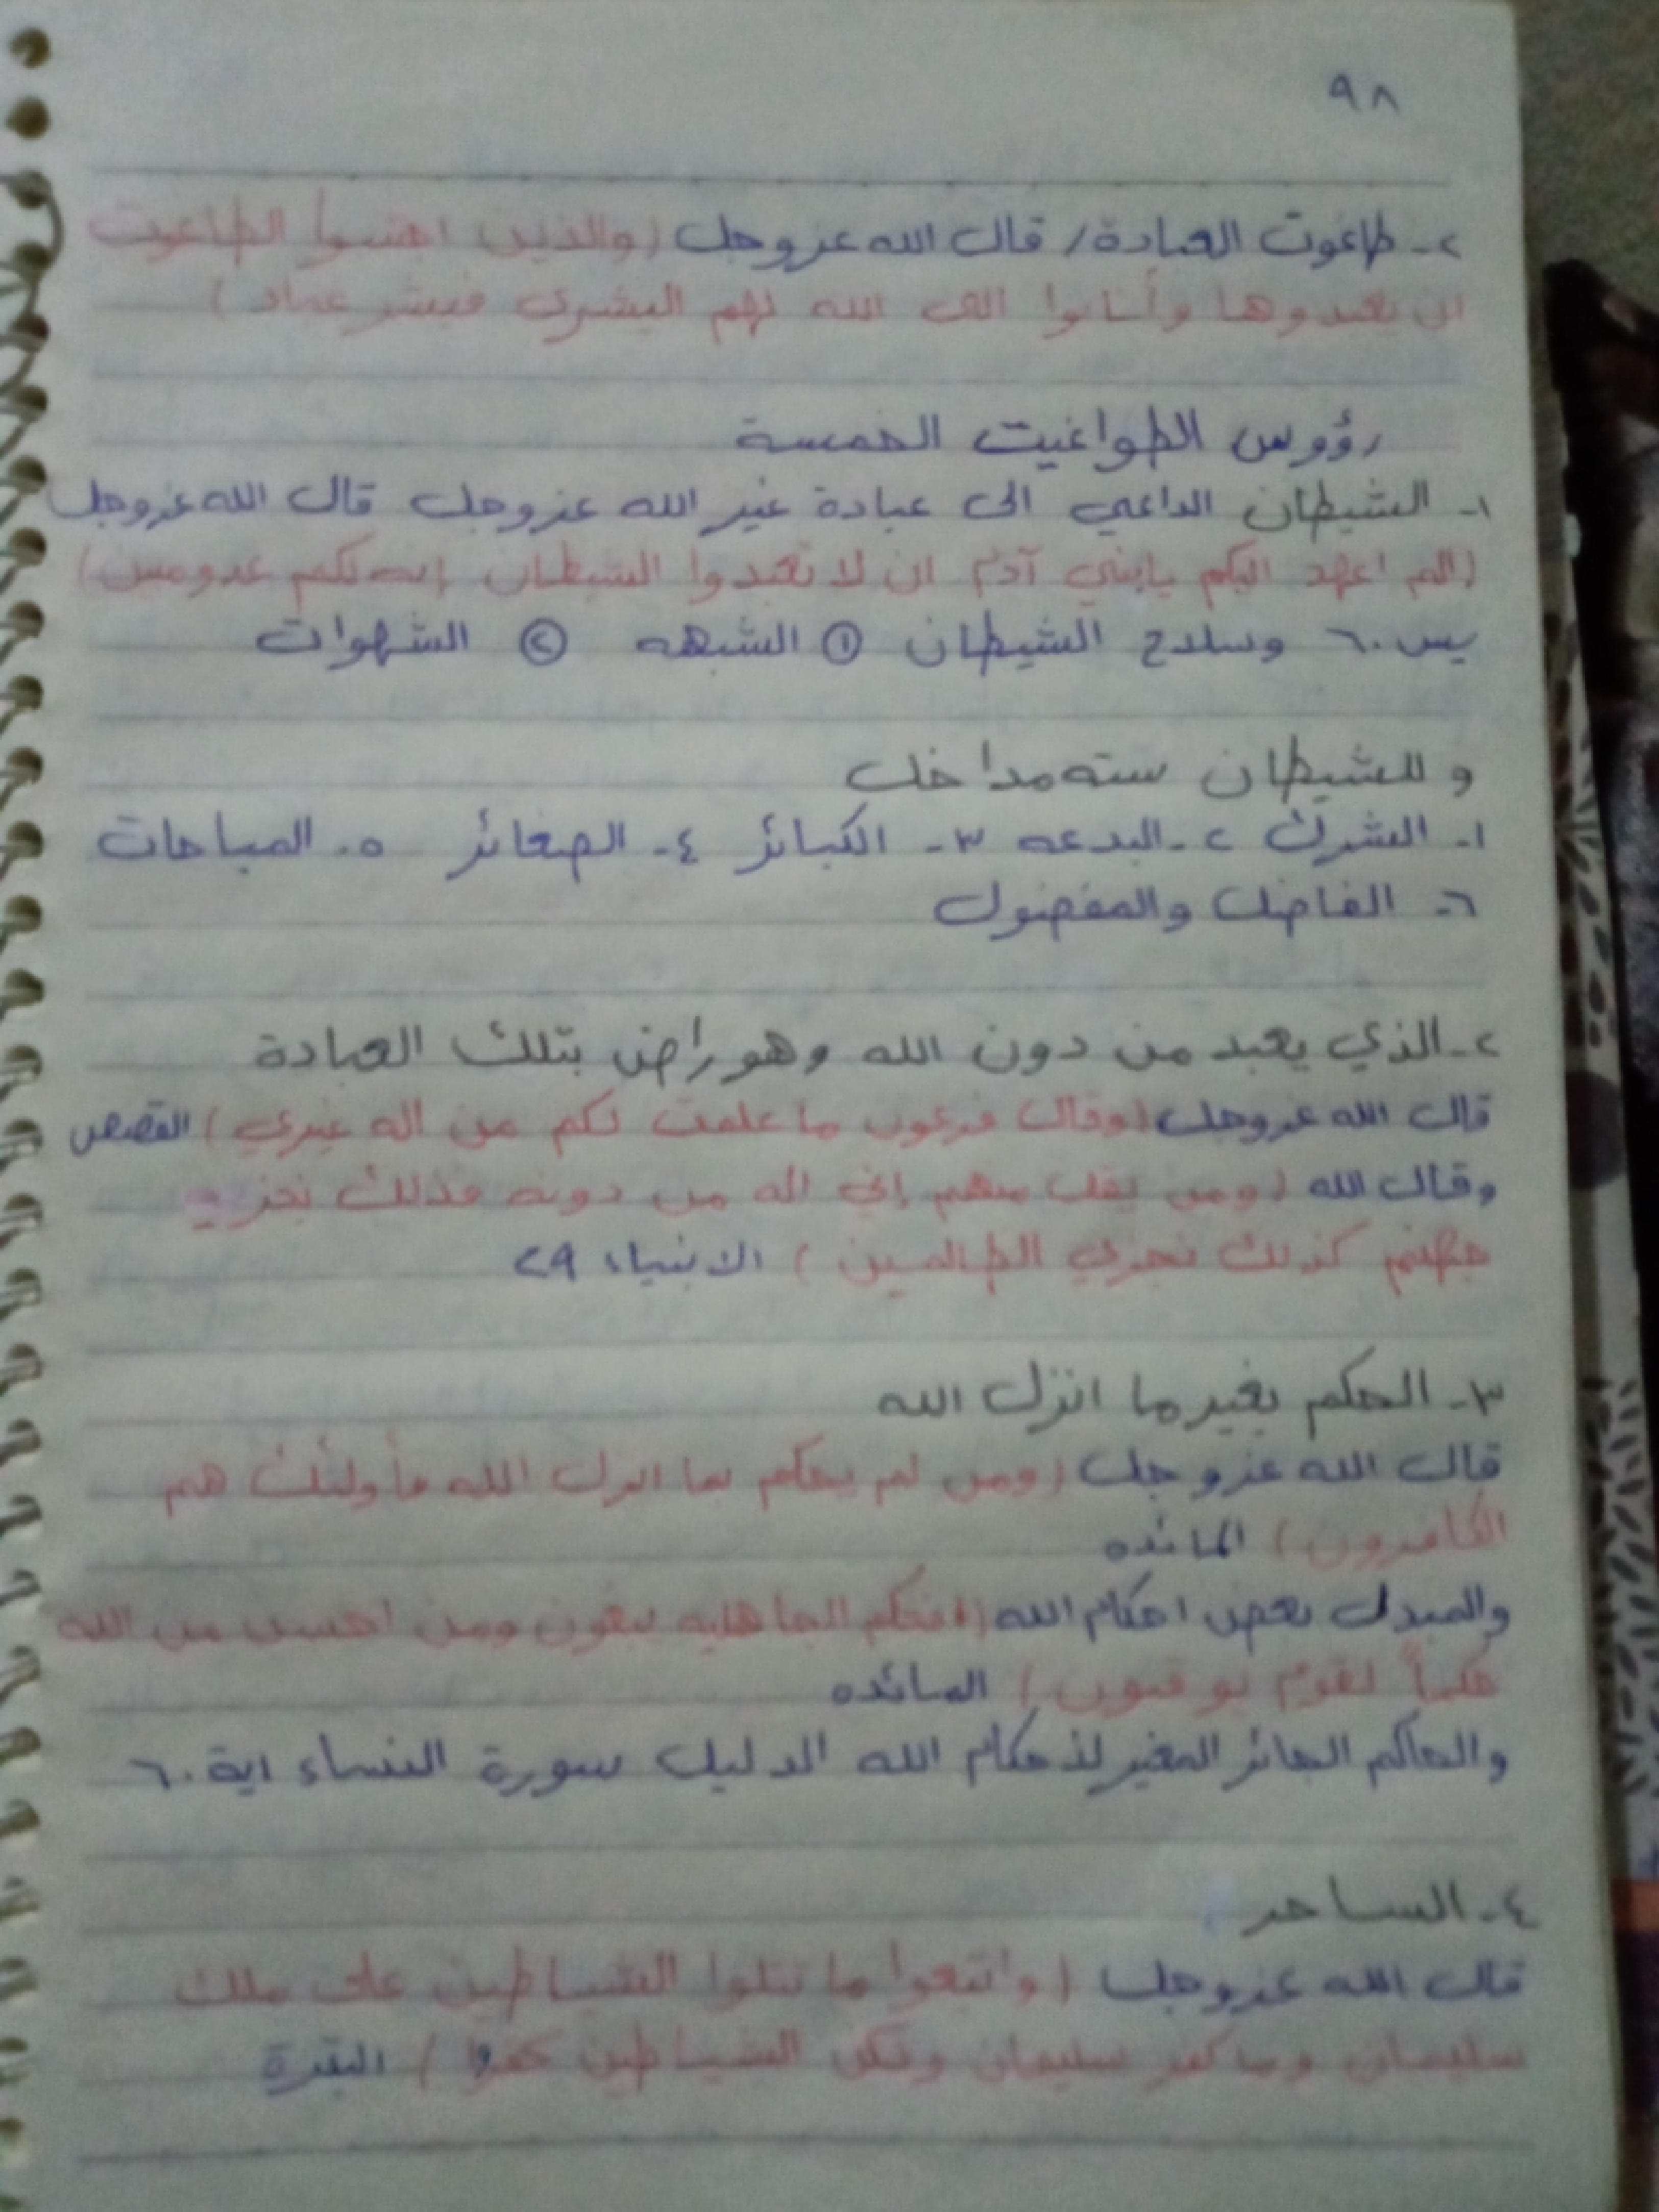 ٩٨
٢- طاغوت العبادة/ قال الله عزوجل (والذين اجتنبوا الطاغوت
ان يعبدوها وأنابوا الى الله لهم البشرى فبشر عباد)
رؤوس الطواغيت الخمسة
١- الشيطان الداعي الى عبادة غير الله عزوجل قال الله عزوجل
(الم اعهد اليكم يابني آدم ان لا تعبدوا الشيطان إنه لكم عدو مبين)
يس ٦٠ وسلاح الشيطان ① الشبهه ② الشهوات
و للشيطان سته مداخل
١- الشرك ٢- البدعه ٣- الكبائر ٤- الصغائر ٥- المباحات
٦- الفاضل والمفضول
٢- الذي يعبد من دون الله وهو راض بتلك العبادة
قال الله عزوجل (وقال فرعون ما علمت لكم من اله غيري) القصص
وقال الله (ومن يقل منهم إني اله من دونه فذلك نجزيه
جهنم كذلك نجزي الظالمين) الانبياء ٢٩
٣- الحكم بغير ما انزل الله
قال الله عزوجل (ومن لم يحكم بما انزل الله فأولئك هم
الكافرون) المائده
والمبدل بعض احكام الله (افحكم الجاهليه يبغون ومن احسن من الله
حكماً لقوم يوقنون) المائده
والحاكم الجائر المغير لأحكام الله الدليل سورة النساء اية ٦٠
٤- الساحر
قال الله عزوجل (واتبعوا ما تتلوا الشياطين على ملك
سليمان وما كفر سليمان ولكن الشياطين كفروا) البقرة